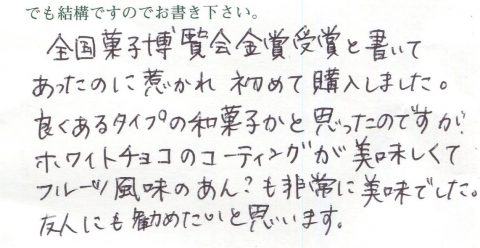 でも結構ですのでお書き下さい。
全国菓子博覧会金賞受賞と書いて
あったのに惹かれ 初めて購入しました。
良くあるタイプの和菓子かと思ったのですが
ホワイトチョコのコーティングが美味しくて
フルーツ風味のあん?も非常に美味でした。
友人にも勧めたいと思います。